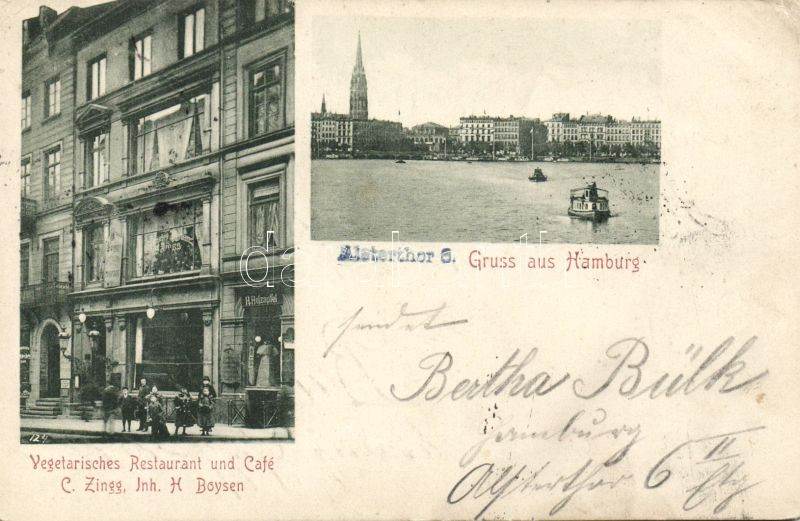 Zingg
H. Holzapfel
124
Vegetarisches Restaurant und Café
C. Zingg, Inh. H Boysen
Alsterthor 6.
Gruss aus Hamburg
darabanth
sendet
Bertha Bülk
Hamburg
Alsterthor 6 II Etg